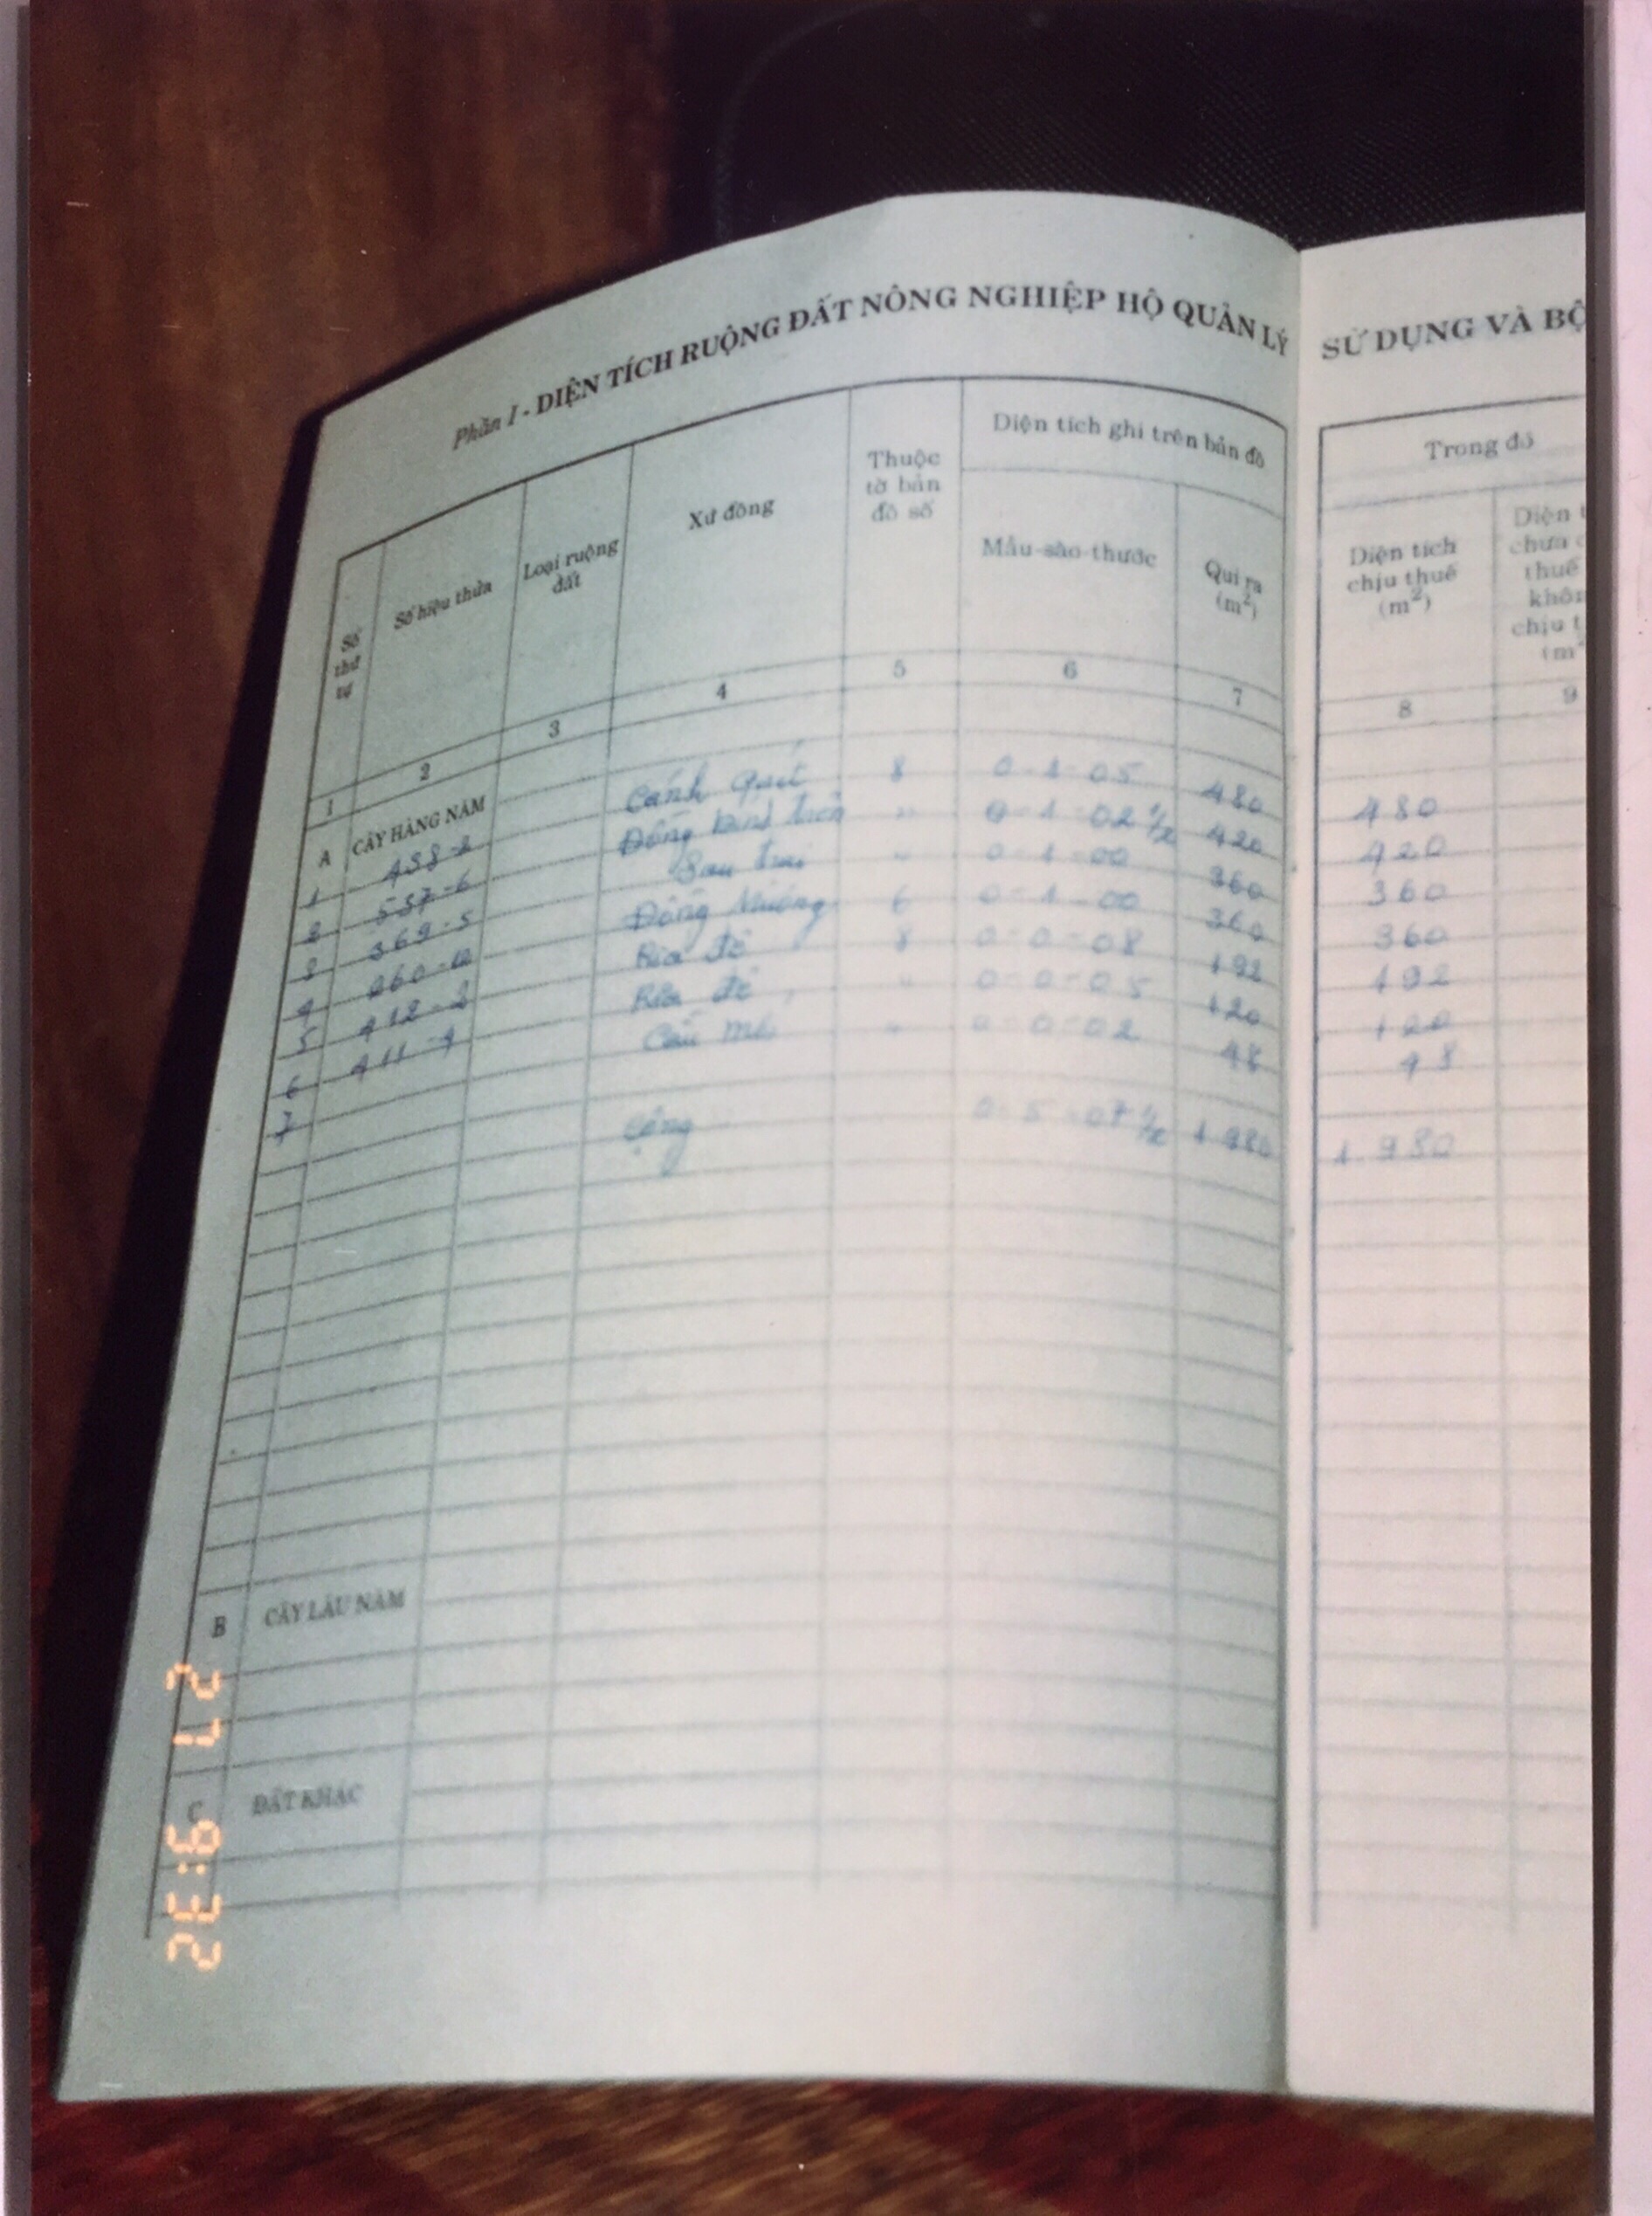 Phần I - DIỆN TÍCH RUỘNG ĐẤT NÔNG NGHIỆP HỘ QUẢN LÝ SỬ DỤNG VÀ BỘ
Số thứ tự
Số hiệu thửa
Loại ruộng đất
Xứ đồng
Thuộc tờ bản đồ số
Diện tích ghi trên bản đồ
Mẫu-sào-thước
Qui ra (m²)
Trong đó
Diện tích chịu thuế (m²)
Diện
chưa
thuế
chịu
(m²
1 2 3 4 5 6 7 8 9
A CÂY HÀNG NĂM
1 458-2 Cánh Quít 8 0-1-05 480 480
2 537-6 Đồng trên " 0-1-02 1/2 420 420
3 369-5 Sau trại " 0-1-00 360 360
4 260-10 Đồng Mường 6 0-1-00 360 360
5 412-2 Rìa đê 8 0-0-08 192 192
6 411-4 Rìa đê " 0-0-05 120 120
7 " 0-0-02 48 48
Cộng 0-5-07 1/2 1980 1.980
B CÂY LÂU NĂM
C ĐẤT KHÁC
27 9:32